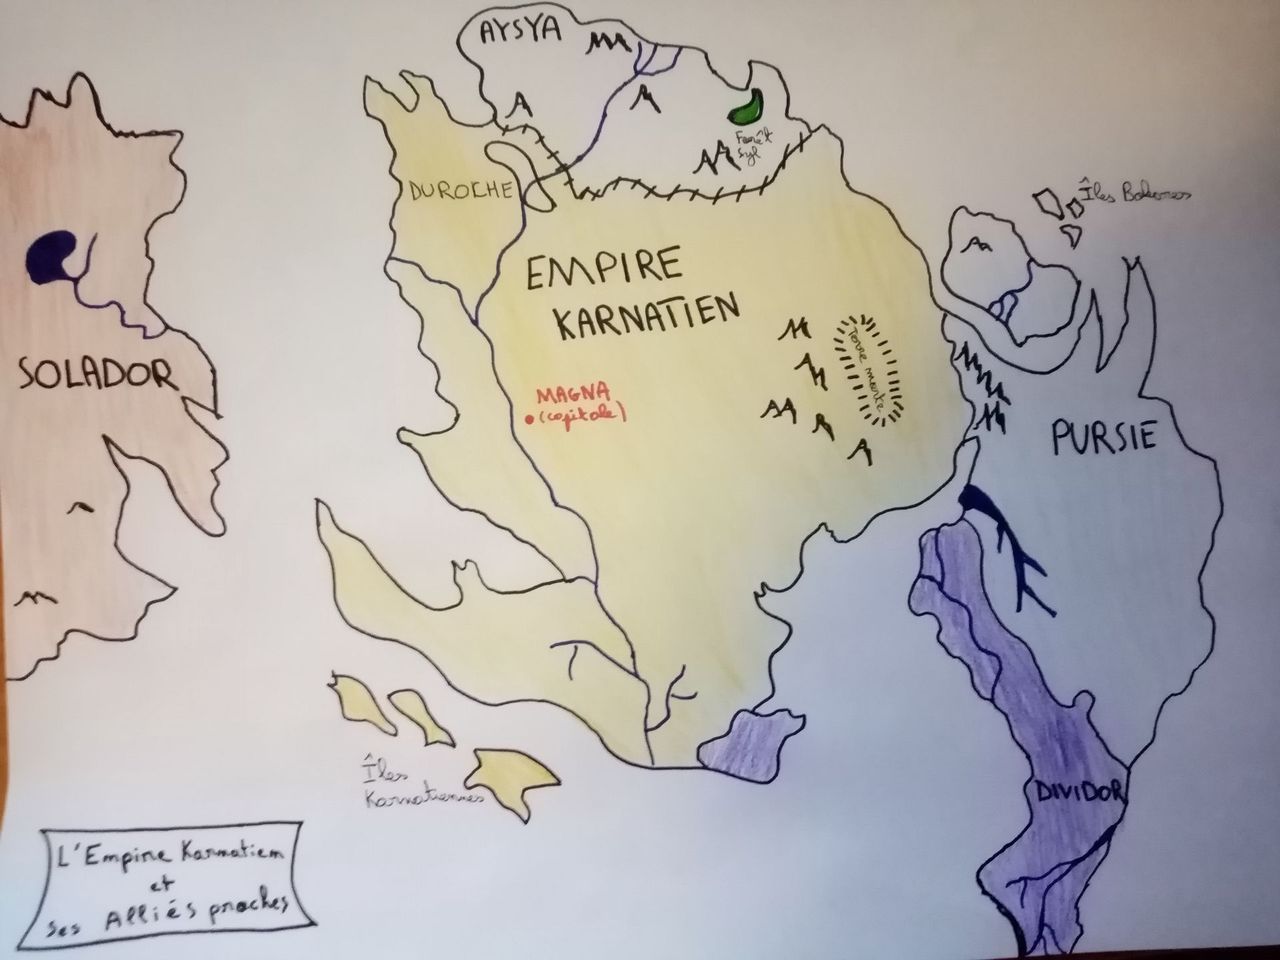 AYSYA
Forêt
Syl
DUROCHE
Îles Bokores
EMPIRE
KARNATIEN
Terre morte
SOLADOR
MAGNA
(capitale)
PURSIE
Îles
Karnatiennes
DIVIDOR
L'Empire Karnatien
et
ses Alliés proches